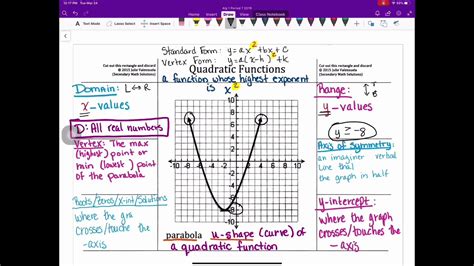 12:17 PM Tue Mar 24
Home
Insert
Draw
View
Class Notebook
Standard Form: y = ax²+bx+c
Vertex Form: y = a(x-h)²+k
Cut out this rectangle and discard
© 2015 Julie Palermoula
(Secondary Math Solutions)
Quadratic Functions
Cut out this rectangle and discard
© 2015 Julie Palermoula
(Secondary Math Solutions)
a function whose highest exponent
is x²
Domain: L↔R
x-values
D: All real numbers
Vertex: The max
(highest) point or
min (lowest) point
of the parabola
Roots/Zeros/x-int/Solutions
where the gra
crosses/touches the
-axis
10
8
6
4
2
-10 -8 -6 -4 -2
2 4 6 8 10
-2
-4
-6
-8
-10
parabola u-shape (curve) of
a quadratic function
Range:
T
B
y-values
y ≥ -8
Axis of Symmetry:
an imaginer verbal
line that
the graph in half
y-intercept:
where the graph
crosses/touches the
-axis